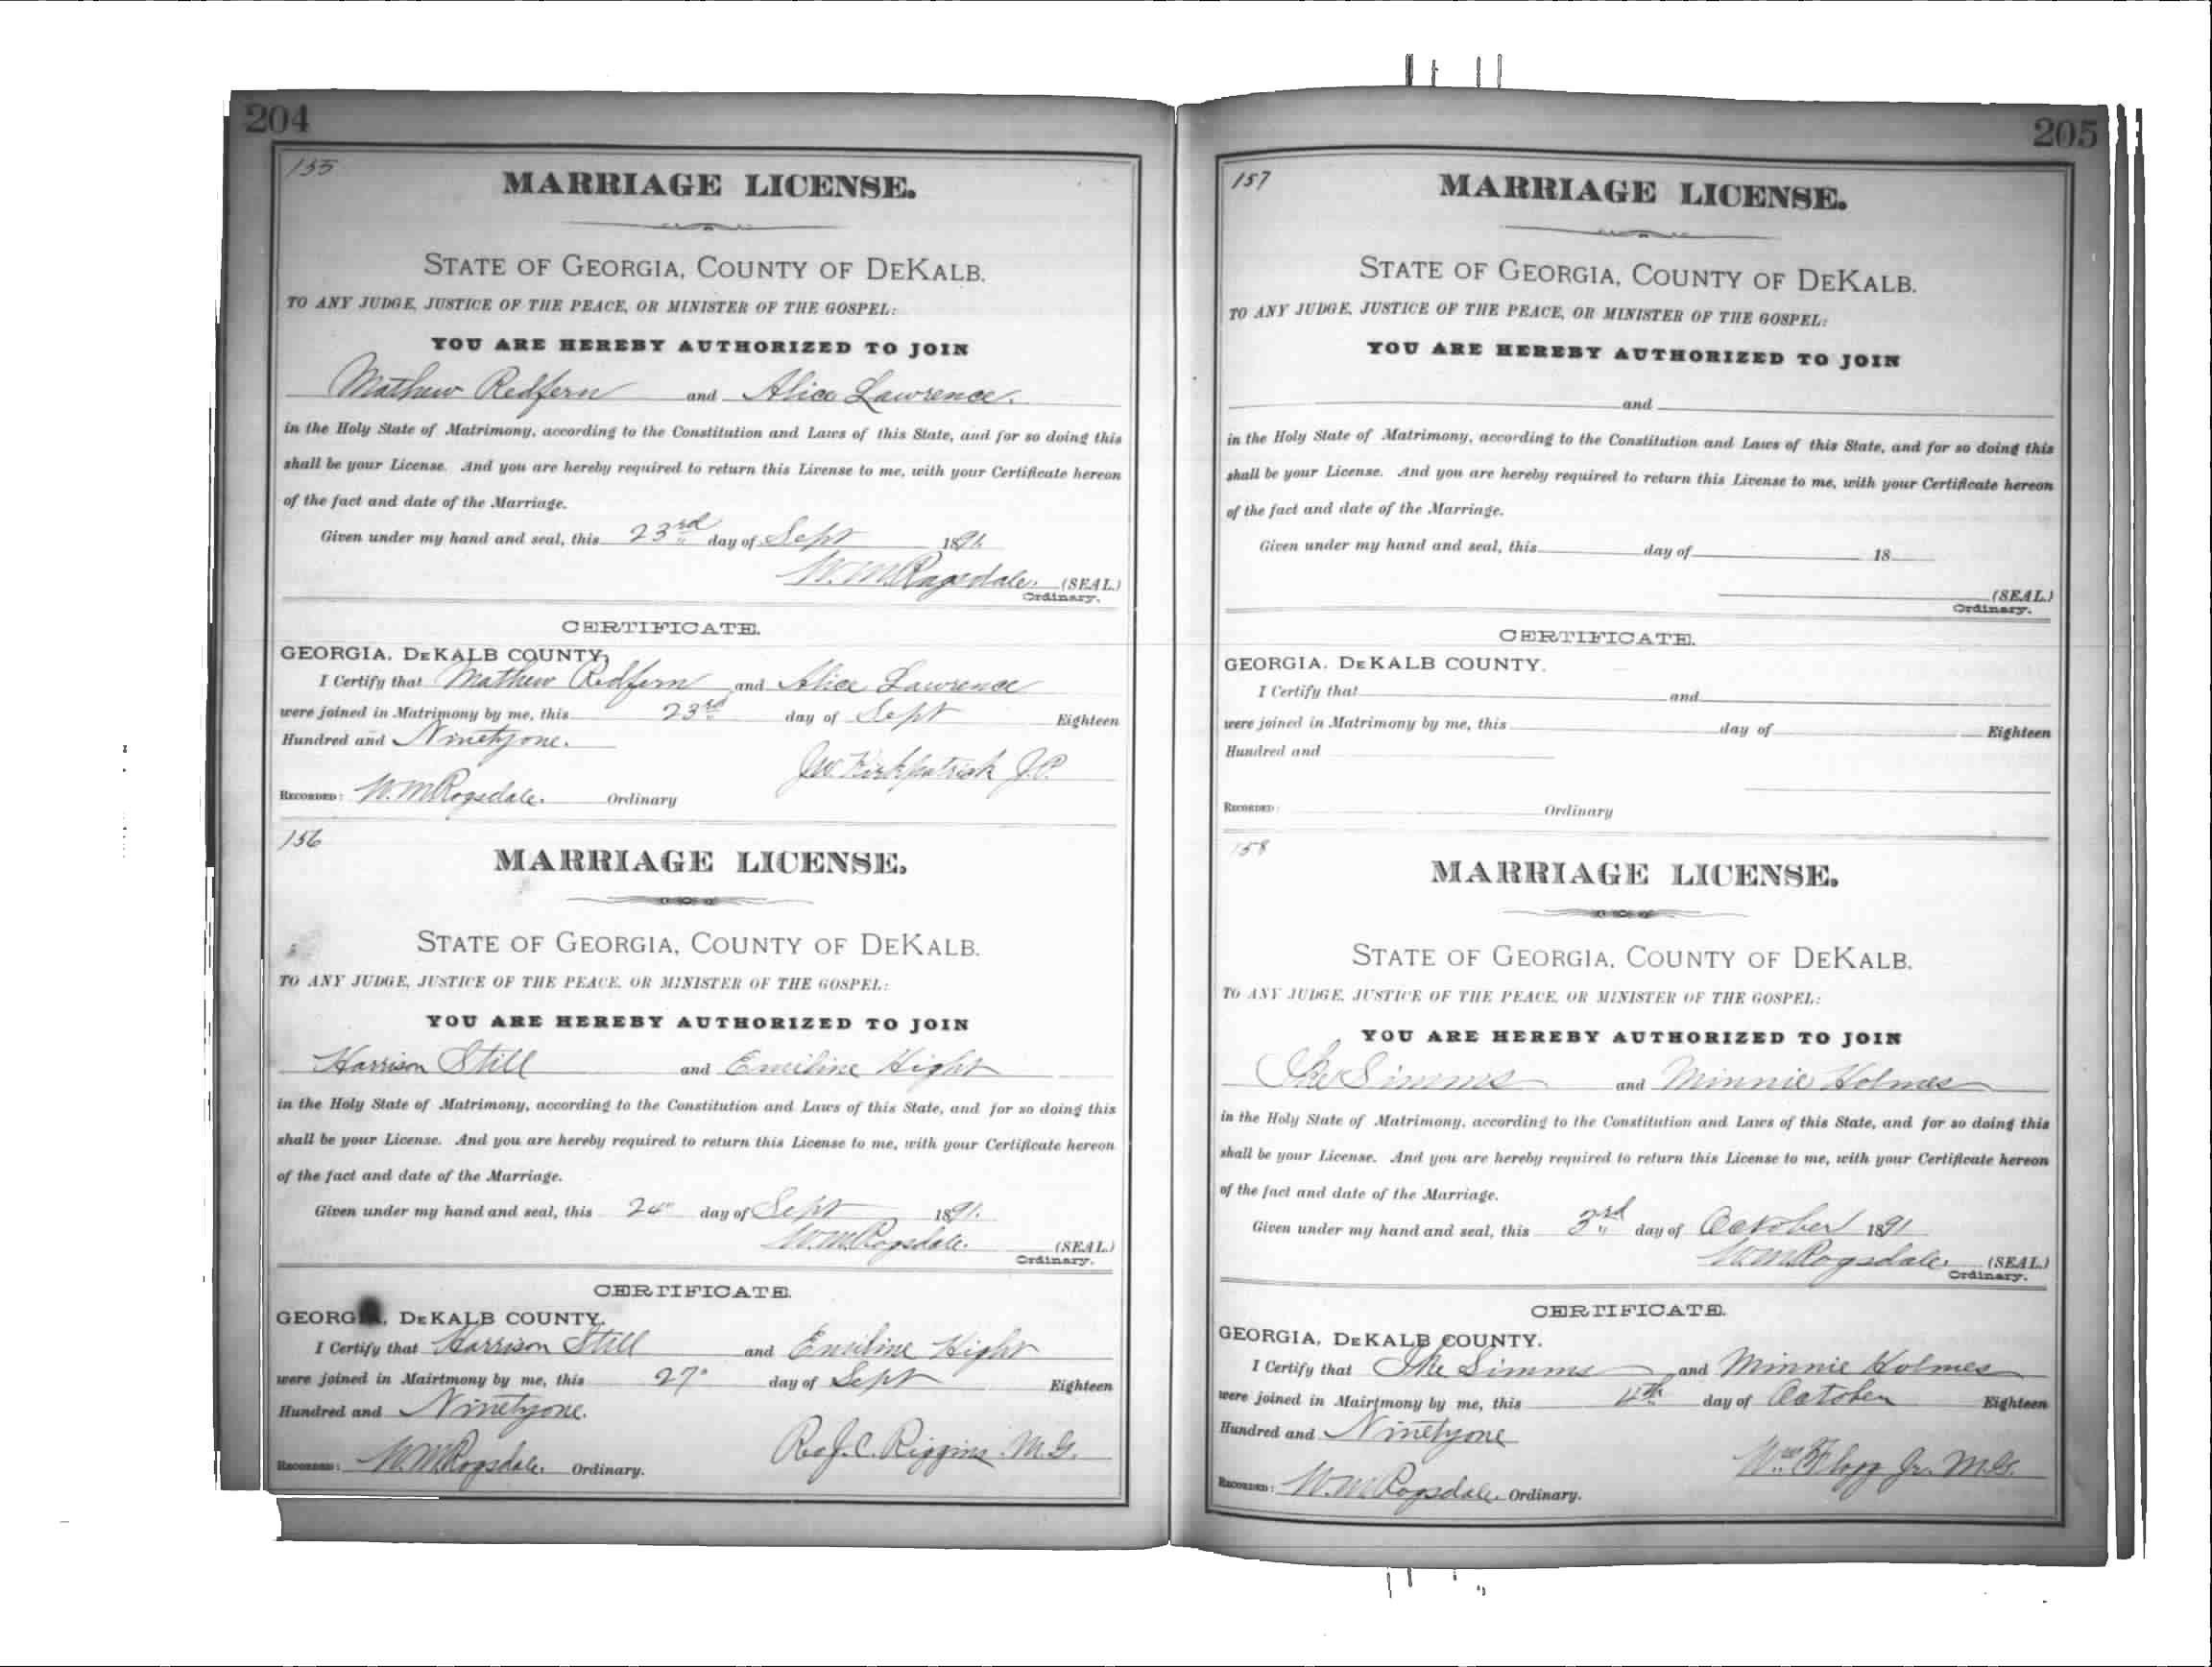 204
155
MARRIAGE LICENSE.
STATE OF GEORGIA, COUNTY OF DEKALB.
TO ANY JUDGE, JUSTICE OF THE PEACE, OR MINISTER OF THE GOSPEL:
YOU ARE HEREBY AUTHORIZED TO JOIN
Mathew Redfern and Alice Lawrence.
in the Holy State of Matrimony, according to the Constitution and Laws of this State, and for so doing this
shall be your License. And you are hereby required to return this License to me, with your Certificate hereon
of the fact and date of the Marriage.
Given under my hand and seal, this 23rd day of Sept 1891.
W. M. Ragsdale. (SEAL.)
Ordinary.
CERTIFICATE.
GEORGIA, DEKALB COUNTY,
I Certify that Mathew Redfern and Alice Lawrence
were joined in Matrimony by me, this 23rd day of Sept Eighteen
Hundred and Ninetyone.
Jw Kirkpatrick J.P.
RECORDED: W. M. Ragsdale. Ordinary
156
MARRIAGE LICENSE.
STATE OF GEORGIA, COUNTY OF DEKALB.
TO ANY JUDGE, JUSTICE OF THE PEACE, OR MINISTER OF THE GOSPEL:
YOU ARE HEREBY AUTHORIZED TO JOIN
Harrison Still and Emiline Hight
in the Holy State of Matrimony, according to the Constitution and Laws of this State, and for so doing this
shall be your License. And you are hereby required to return this License to me, with your Certificate hereon
of the fact and date of the Marriage.
Given under my hand and seal, this 24" day of Sept 1891.
W. M. Ragsdale. (SEAL.)
Ordinary.
CERTIFICATE.
GEORGIA, DEKALB COUNTY.
I Certify that Harrison Still and Emiline Hight
were joined in Mairtmony by me, this 27" day of Sept Eighteen
Hundred and Ninetyone.
Rev J. C. Riggins. M. G.
RECORDED: W. M. Ragsdale. Ordinary.
205
157
MARRIAGE LICENSE.
STATE OF GEORGIA, COUNTY OF DEKALB.
TO ANY JUDGE, JUSTICE OF THE PEACE, OR MINISTER OF THE GOSPEL:
YOU ARE HEREBY AUTHORIZED TO JOIN
and
in the Holy State of Matrimony, according to the Constitution and Laws of this State, and for so doing this
shall be your License. And you are hereby required to return this License to me, with your Certificate hereon
of the fact and date of the Marriage.
Given under my hand and seal, this day of 18
(SEAL.)
Ordinary.
CERTIFICATE.
GEORGIA, DEKALB COUNTY.
I Certify that and
were joined in Matrimony by me, this day of Eighteen
Hundred and
RECORDED: Ordinary
158
MARRIAGE LICENSE.
STATE OF GEORGIA, COUNTY OF DEKALB.
TO ANY JUDGE, JUSTICE OF THE PEACE, OR MINISTER OF THE GOSPEL:
YOU ARE HEREBY AUTHORIZED TO JOIN
Ike Simms and Minnie Holmes
in the Holy State of Matrimony, according to the Constitution and Laws of this State, and for so doing this
shall be your License. And you are hereby required to return this License to me, with your Certificate hereon
of the fact and date of the Marriage.
Given under my hand and seal, this 3rd day of October 1891
W. M. Ragsdale. (SEAL.)
Ordinary.
CERTIFICATE.
GEORGIA, DEKALB COUNTY.
I Certify that Ike Simms and Minnie Holmes
were joined in Mairtmony by me, this 4th day of October Eighteen
Hundred and Ninetyone
Wm Flagg Jr. M.G.
RECORDED: W. M. Ragsdale. Ordinary.